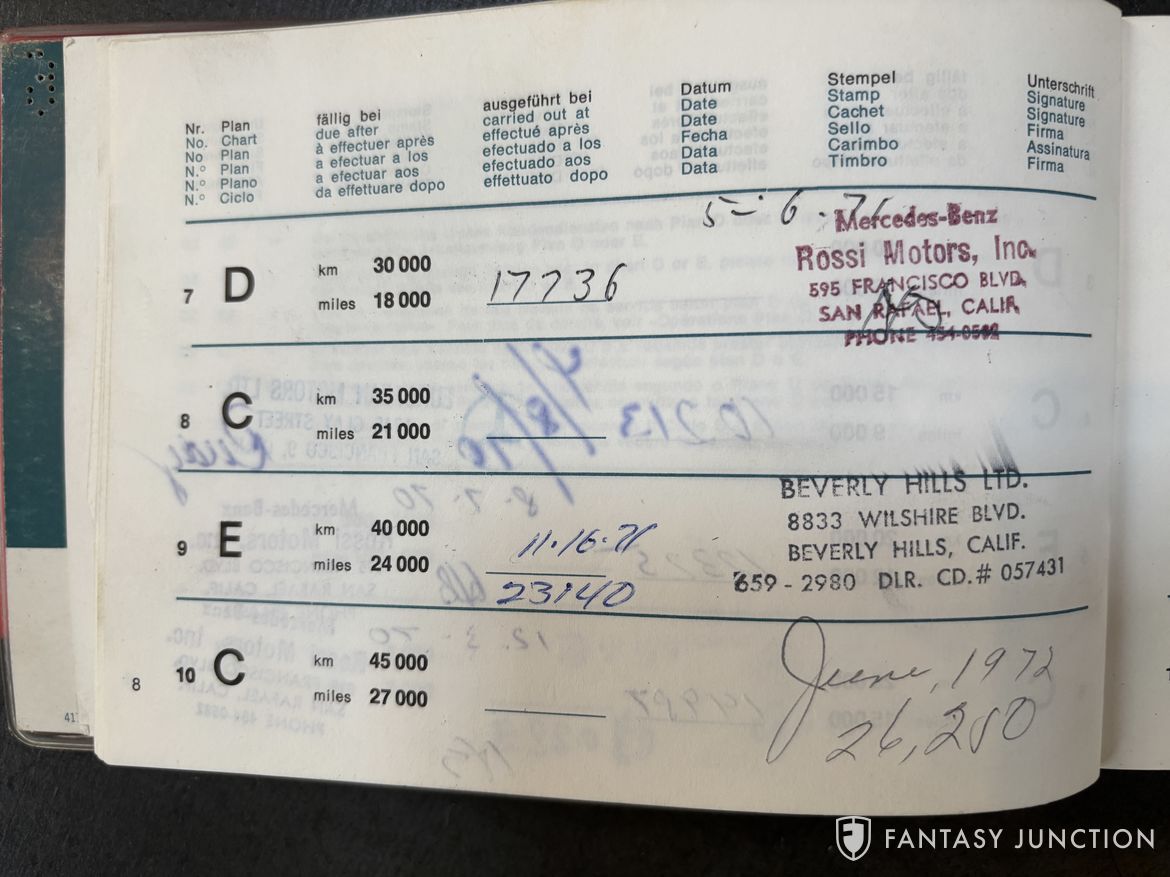 Nr. Plan fällig bei ausgeführt bei Datum Stempel Unterschrift
No. Chart due after carried out at Date Stamp Signature
No Plan à effectuer après effectué après Date Cachet Signature
N.º Plan a efectuar a los efectuado a los Fecha Sello Firma
N.º Plano a efectuar aos efectuado aos Data Carimbo Assinatura
N.º Ciclo da effettuare dopo effettuato dopo Data Timbro Firma
5-6-71
Mercedes-Benz
Rossi Motors, Inc.
595 FRANCISCO BLVD.
SAN RAFAEL, CALIF.
PHONE 454-0582
7 D km 30 000
miles 18 000 17736
8 C km 35 000
miles 21 000
BEVERLY HILLS LTD.
8833 WILSHIRE BLVD.
BEVERLY HILLS, CALIF.
659-2980 DLR. CD.# 057431
9 E km 40 000 11·16·71
miles 24 000
23140
10 C km 45 000
miles 27 000
June, 1972
26,280
8
41
FANTASY JUNCTION